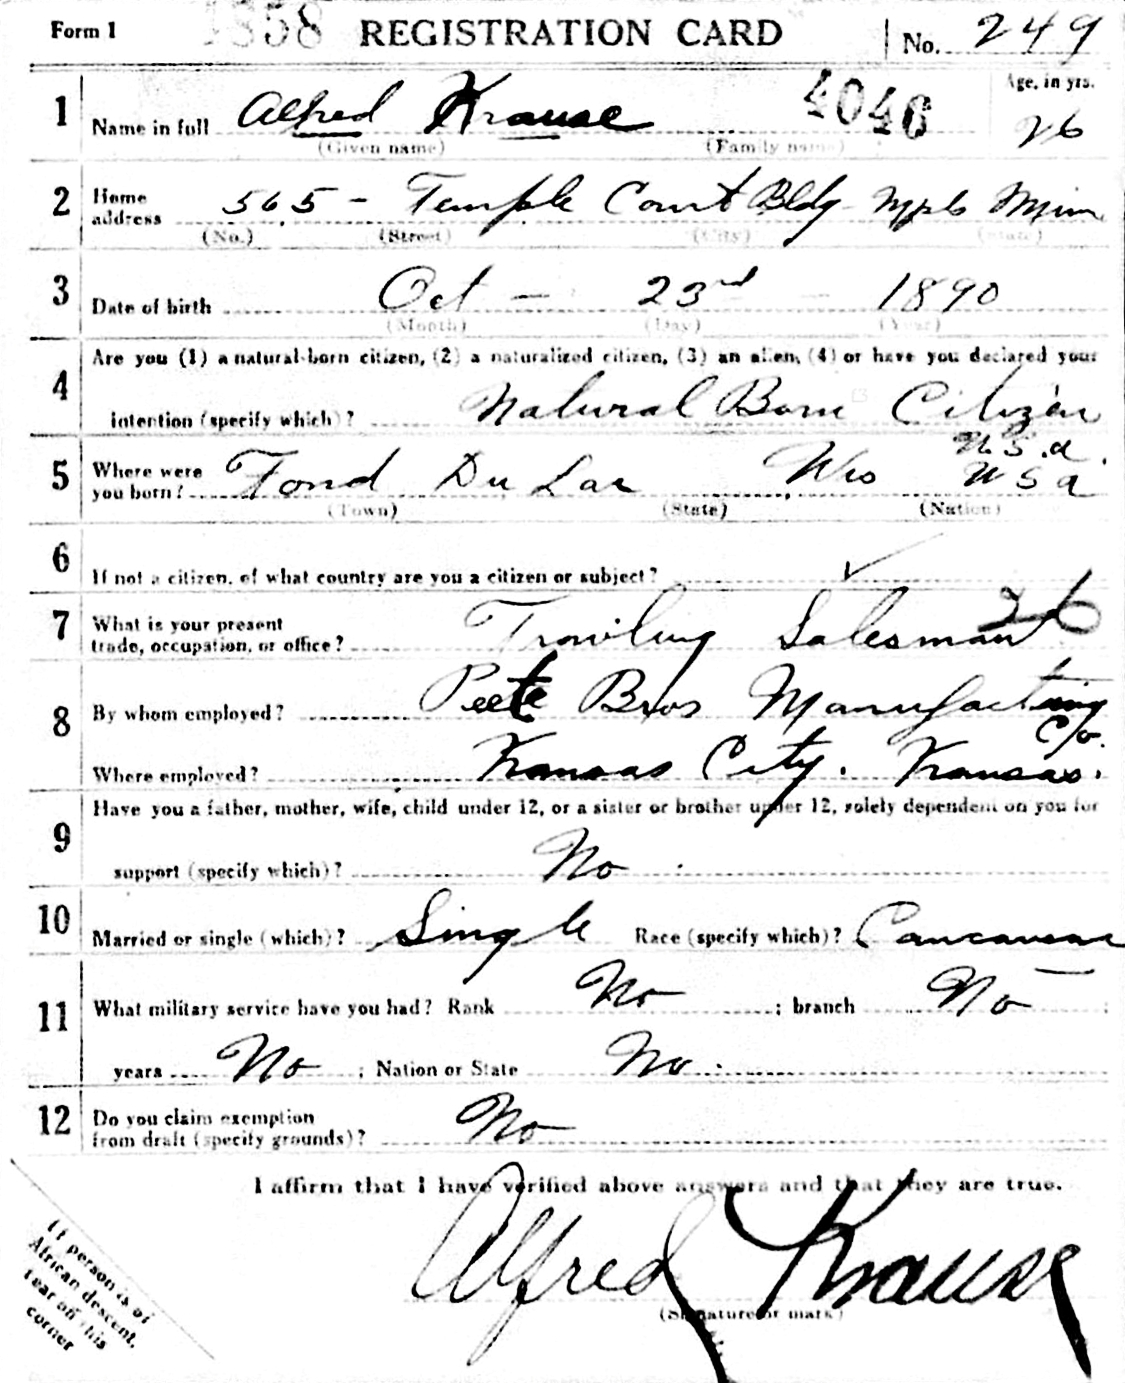 Form 1 1858 REGISTRATION CARD No. 249
1 Name in full Alfred Krause 4046 Age, in yrs. 26
(Given name) (Family name)
2 Home address 565 - Temple Court Bldg Mpls Minn
(No.) (Street) (City) (State)
3 Date of birth Oct - 23rd - 1890
(Month) (Day) (Year)
4 Are you (1) a natural-born citizen, (2) a naturalized citizen, (3) an alien, (4) or have you declared your
intention (specify which)? Natural Born Citizen
U.S.a.
5 Where were you born? Fond Du Lac Wis U S a
(Town) (State) (Nation)
6 If not a citizen, of what country are you a citizen or subject? ✓
7 What is your present trade, occupation, or office? Travling Salesman 26
8 By whom employed? Peet Bros Manufacturing
Co.
Where employed? Kansas City. Kansas.
9 Have you a father, mother, wife, child under 12, or a sister or brother under 12, solely dependent on you for
support (specify which)? No
10 Married or single (which)? Single Race (specify which)?
11 What military service have you had? Rank No ; branch No ;
years No ; Nation or State No
12 Do you claim exemption from draft (specify grounds)? No
I affirm that I have verified above answers and that they are true.
Alfred Krause
(Signature or mark)
If person is of
African descent,
tear off this
corner